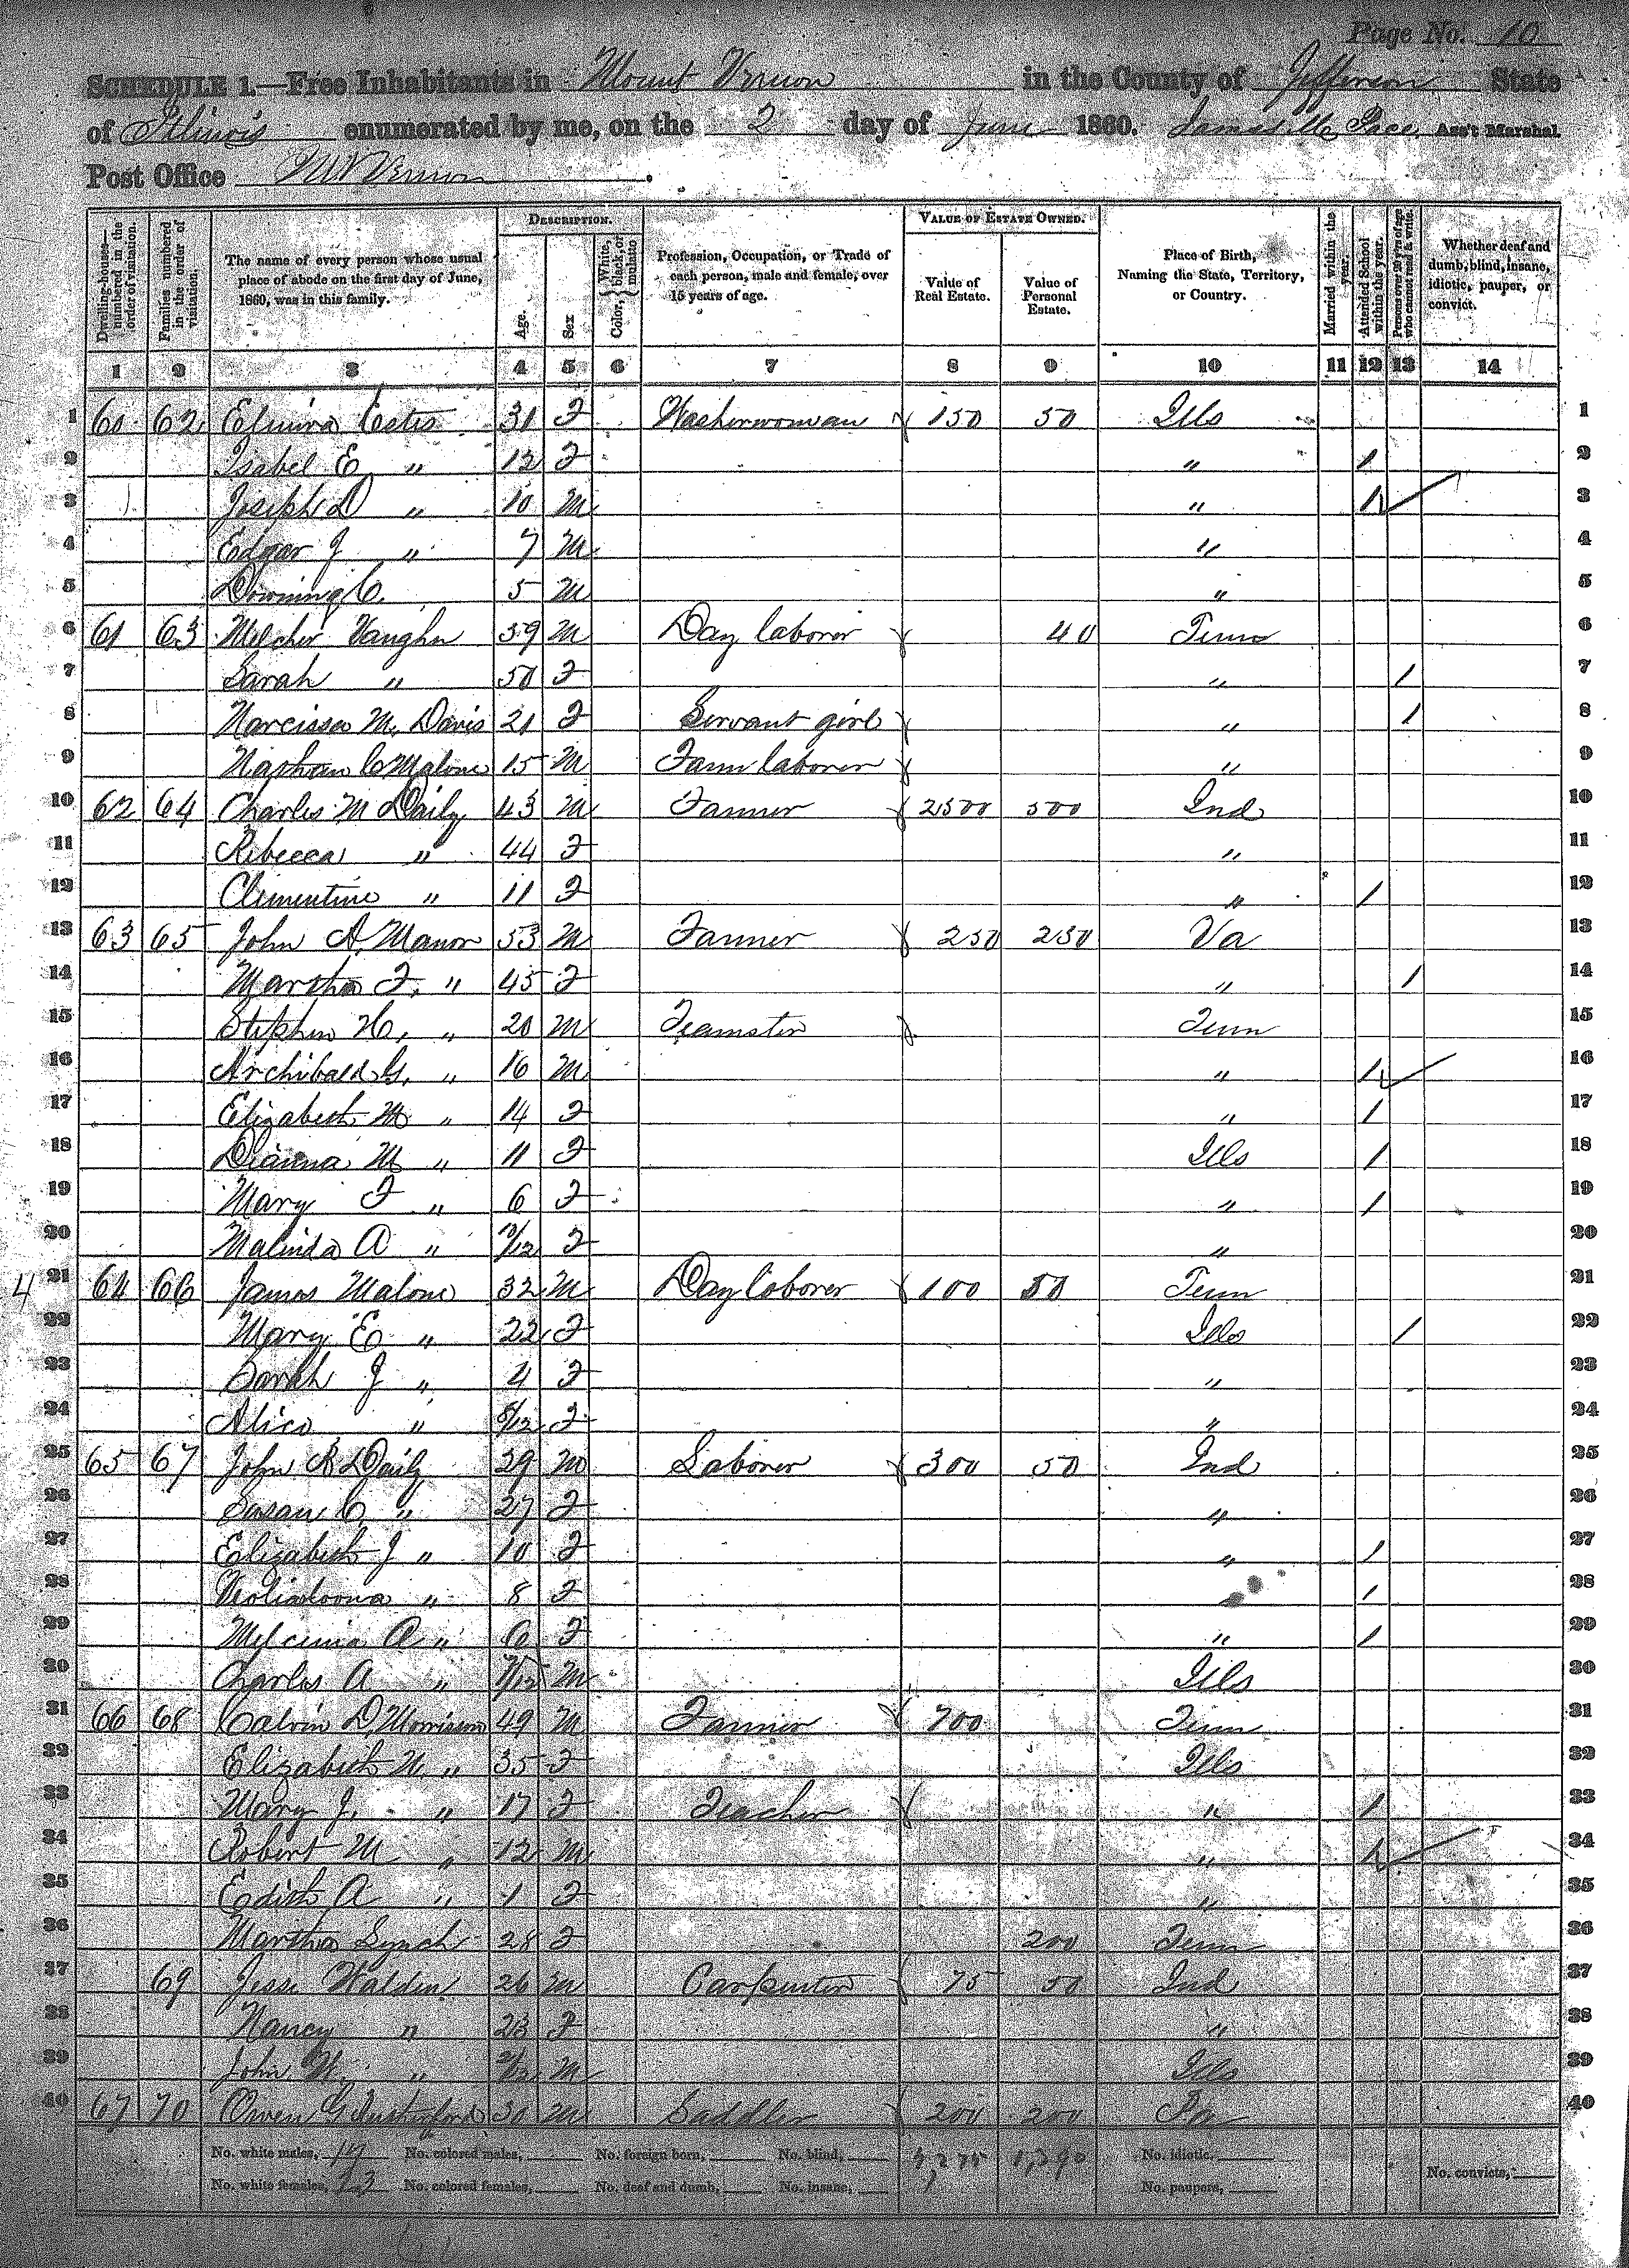 Page No. 10
SCHEDULE 1.—Free Inhabitants in Mount Vernon in the County of Jefferson State
of Illinois enumerated by me, on the 2 day of June 1860. Pace Ass't Marshal.
Post Office Mt Vernon.
Dwelling-houses—numbered in the order of visitation.
Families numbered in the order of visitation.
The name of every person whose usual place of abode on the first day of June, 1860, was in this family.
DESCRIPTION.
Age.
Sex
Color, { White, black, or mulatto
Profession, Occupation, or Trade of each person, male and female, over 15 years of age.
VALUE OF ESTATE OWNED.
Value of Real Estate.
Value of Personal Estate.
Place of Birth, Naming the State, Territory, or Country.
Married within the year.
Attended School within the year.
Persons over 20 y'rs of age who cannot read & write.
Whether deaf and dumb, blind, insane, idiotic, pauper, or convict.
1 2 3 4 5 6 7 8 9 10 11 12 13 14
1 60 62 Elmira Estes 31 F Washerwoman 150 50 Ills 1
2 Isabel E " 12 F " 1 2
3 Joseph D " 10 M " 1 3
4 Edgar J " 7 M " 4
5 Downing C. 5 M " 5
6 61 63 Melcher Vaughn 39 M Day laborer 40 Tenn 6
7 Sarah " 50 F " 1 7
8 Narcissa M. Davis 21 F Servant girl " 1 8
9 Nathan C Malone 15 M Farm laborer " 9
10 62 64 Charles M Daily 43 M Farmer 2500 500 Ind 10
11 Rebecca " 44 F " 11
12 Clementine " 11 F " 1 12
13 63 65 John A. Manor 53 M Farmer 250 250 Va 13
14 Martha F. " 45 F " 1 14
15 Stephen H. " 20 M Teamster Tenn 15
16 Archibald G. " 16 M " 1 16
17 Elizabeth M " 14 F " 1 17
18 Dianna M " 11 F Ills 1 18
19 Mary F " 6 F " 1 19
20 Malinda A " 10/12 F " 20
4 21 64 66 James Malone 32 M Day laborer 100 50 Tenn 21
22 Mary E " 22 F Ills 1 22
23 Sarah J " 4 F " 23
24 Alice " 8/12 F " 24
25 65 67 John R Daily 29 M Laborer 300 50 Ind 25
26 Susan C. " 27 F " 26
27 Elizabeth J " 10 F " 1 27
28 " 8 F " 1 28
29 Melcenia A " 6 F " 1 29
30 Charles A " 7/12 M Ills 30
31 66 68 Calvin D. Morrison 49 M Farmer 700 Tenn 31
32 Elizabeth M. " 35 F Ills 32
33 Mary J. " 17 F Teacher " 1 33
34 Robert M " 12 M " 1 34
35 Edith A " 1 F " 35
36 Martha Lynch 28 F 200 Tenn 36
37 69 Jesse Walden 26 M Carpenter 75 50 Ind 37
38 Nancy " 23 F " 38
39 John W. " 2/12 M Ills 39
40 67 70 Owen G 30 M Saddler 200 200 Pa 40
No. white males, 17 No. colored males, No. foreign born, No. blind, 4,275 1,390 No. idiotic.
No. white females, 23 No. colored females, No. deaf and dumb, No. insane, No. paupers, No. convicts,